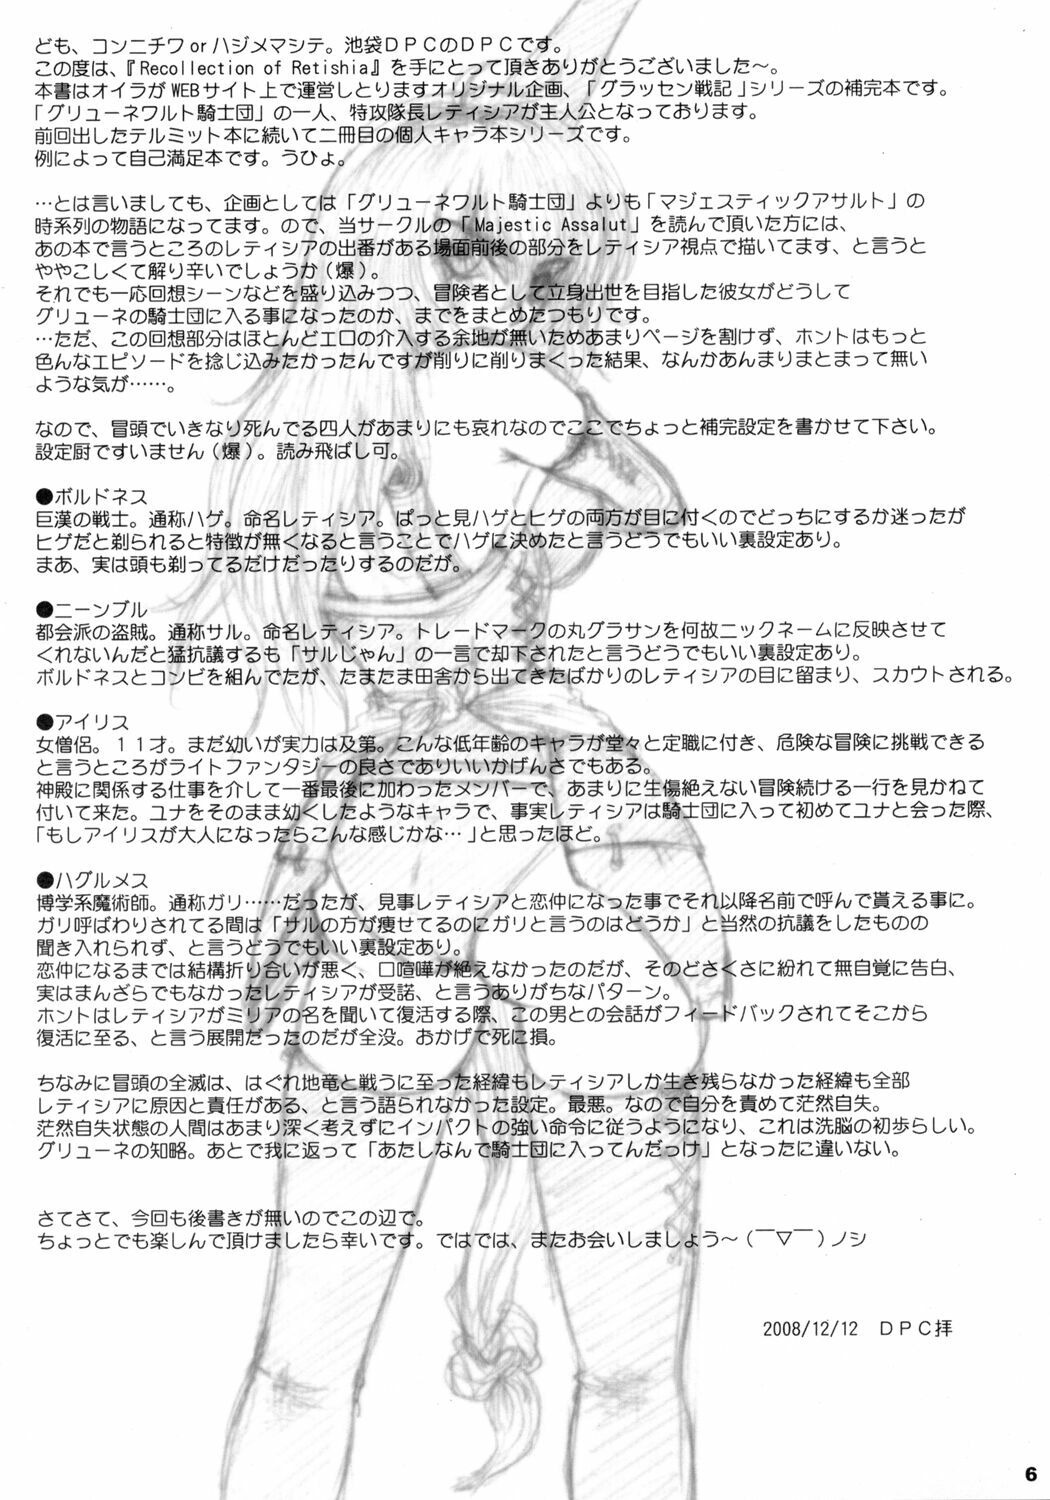 ども、コンニチワorハジメマシテ。池袋ＤＰＣのＤＰＣです。
この度は、『Recollection of Retishia』を手にとって頂きありがとうございました〜。
本書はオイラがWEBサイト上で運営しとりますオリジナル企画、「グラッセン戦記」シリーズの補完本です。
「グリューネワルト騎士団」の一人、特攻隊長レティシアが主人公となっております。
前回出したテルミット本に続いて二冊目の個人キャラ本シリーズです。
例によって自己満足本です。うひょ。
…とは言いましても、企画としては「グリューネワルト騎士団」よりも「マジェスティックアサルト」の
時系列の物語になってます。ので、当サークルの「Majestic Assalut」を読んで頂いた方には、
あの本で言うところのレティシアの出番がある場面前後の部分をレティシア視点で描いてます、と言うと
ややこしくて解り辛いでしょうか（爆）。
それでも一応回想シーンなどを盛り込みつつ、冒険者として立身出世を目指した彼女がどうして
グリューネの騎士団に入る事になったのか、までをまとめたつもりです。
…ただ、この回想部分はほとんどエロの介入する余地が無いためあまりページを割けず、ホントはもっと
色んなエピソードを捻じ込みたかったんですが削りに削りまくった結果、なんかあんまりまとまって無い
ような気が……。
なので、冒頭でいきなり死んでる四人があまりにも哀れなのでここでちょっと補完設定を書かせて下さい。
設定厨ですいません（爆）。読み飛ばし可。
●ボルドネス
巨漢の戦士。通称ハゲ。命名レティシア。ぱっと見ハゲとヒゲの両方が目に付くのでどっちにするか迷ったが
ヒゲだと剃られると特徴が無くなると言うことでハゲに決めたと言うどうでもいい裏設定あり。
まあ、実は頭も剃ってるだけだったりするのだが。
●ニーンブル
都会派の盗賊。通称サル。命名レティシア。トレードマークの丸グラサンを何故ニックネームに反映させて
くれないんだと猛抗議するも「サルじゃん」の一言で却下されたと言うどうでもいい裏設定あり。
ボルドネスとコンビを組んでたが、たまたま田舎から出てきたばかりのレティシアの目に留まり、スカウトされる。
●アイリス
女僧侶。１１才。まだ幼いが実力は及第。こんな低年齢のキャラが堂々と定職に付き、危険な冒険に挑戦できる
と言うところがライトファンタジーの良さでありいいかげんさでもある。
神殿に関係する仕事を介して一番最後に加わったメンバーで、あまりに生傷絶えない冒険続ける一行を見かねて
付いて来た。ユナをそのまま幼くしたようなキャラで、事実レティシアは騎士団に入って初めてユナと会った際、
「もしアイリスが大人になったらこんな感じかな…」と思ったほど。
●ハグルメス
博学系魔術師。通称ガリ……だったが、見事レティシアと恋仲になった事でそれ以降名前で呼んで貰える事に。
ガリ呼ばわりされてる間は「サルの方が痩せてるのにガリと言うのはどうか」と当然の抗議をしたものの
聞き入れられず、と言うどうでもいい裏設定あり。
恋仲になるまでは結構折り合いが悪く、口喧嘩が絶えなかったのだが、そのどさくさに紛れて無自覚に告白、
実はまんざらでもなかったレティシアが受諾、と言うありがちなパターン。
ホントはレティシアがミリアの名を聞いて復活する際、この男との会話がフィードバックされてそこから
復活に至る、と言う展開だったのだが全没。おかげで死に損。
ちなみに冒頭の全滅は、はぐれ地竜と戦うに至った経緯もレティシアしか生き残らなかった経緯も全部
レティシアに原因と責任がある、と言う語られなかった設定。最悪。なので自分を責めて茫然自失。
茫然自失状態の人間はあまり深く考えずにインパクトの強い命令に従うようになり、これは洗脳の初歩らしい。
グリューネの知略。あとで我に返って「あたしなんで騎士団に入ってんだっけ」となったに違いない。
さてさて、今回も後書きが無いのでこの辺で。
ちょっとでも楽しんで頂けましたら幸いです。ではでは、またお会いしましょう〜（￣▽￣）ノシ
2008/12/12　ＤＰＣ拝
6